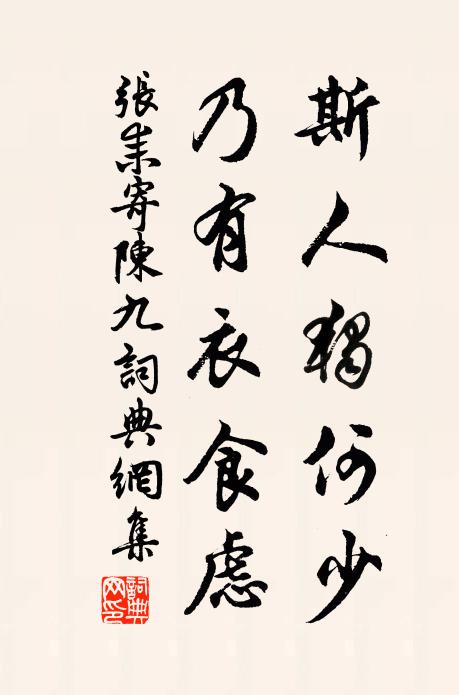 斯人獨何少
乃有衣食慮
張耒寄陳九詞典網集
詞典網印